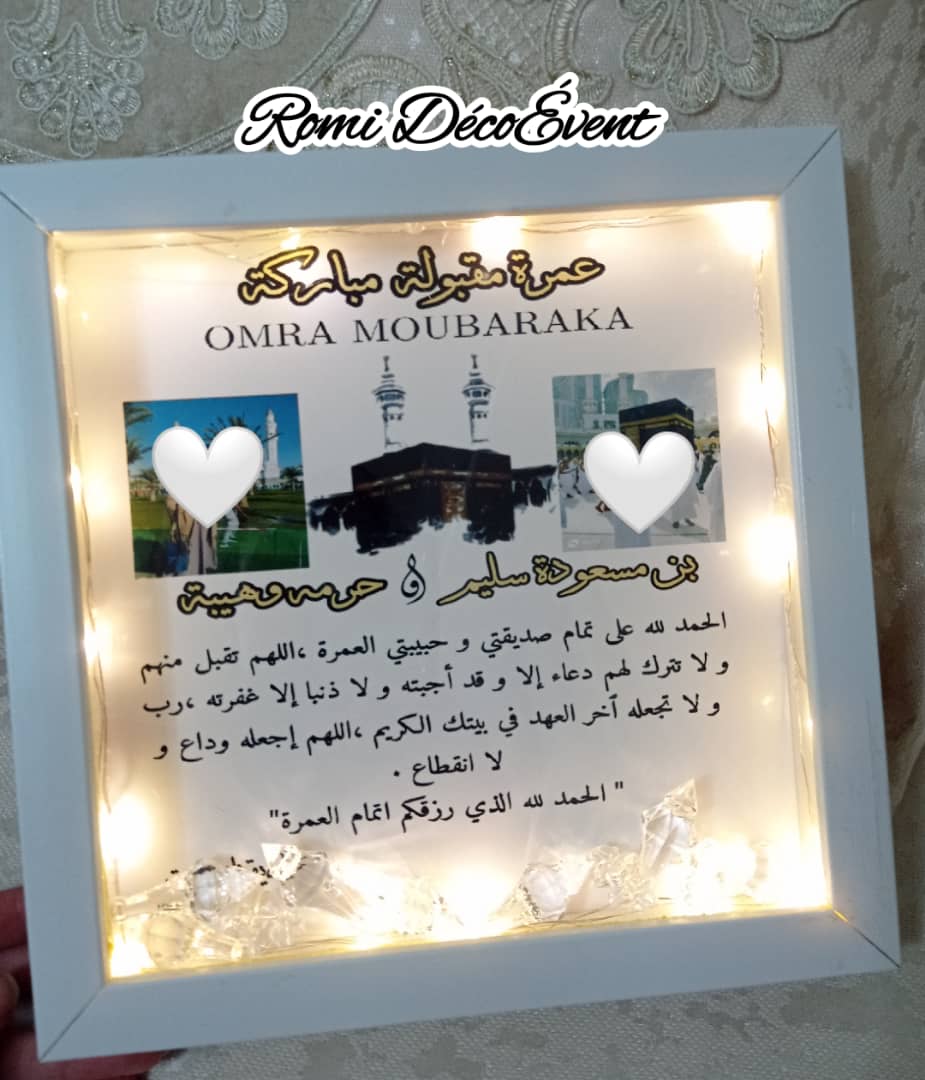 Romi DécoÉvent
عمرة مقبولة مباركة
OMRA MOUBARAKA
بن مسعودة سليم و حرمه وهيبة
الحمد لله على تمام صديقتي و حبيبتي العمرة ،اللهم تقبل منهم
و لا تترك لهم دعاء إلا و قد أجبته و لا ذنبا إلا غفرته ،رب
و لا تجعله آخر العهد في بيتك الكريم ،اللهم إجعله وداع و
لا انقطاع .
" الحمد لله الذي رزقكم اتمام العمرة"